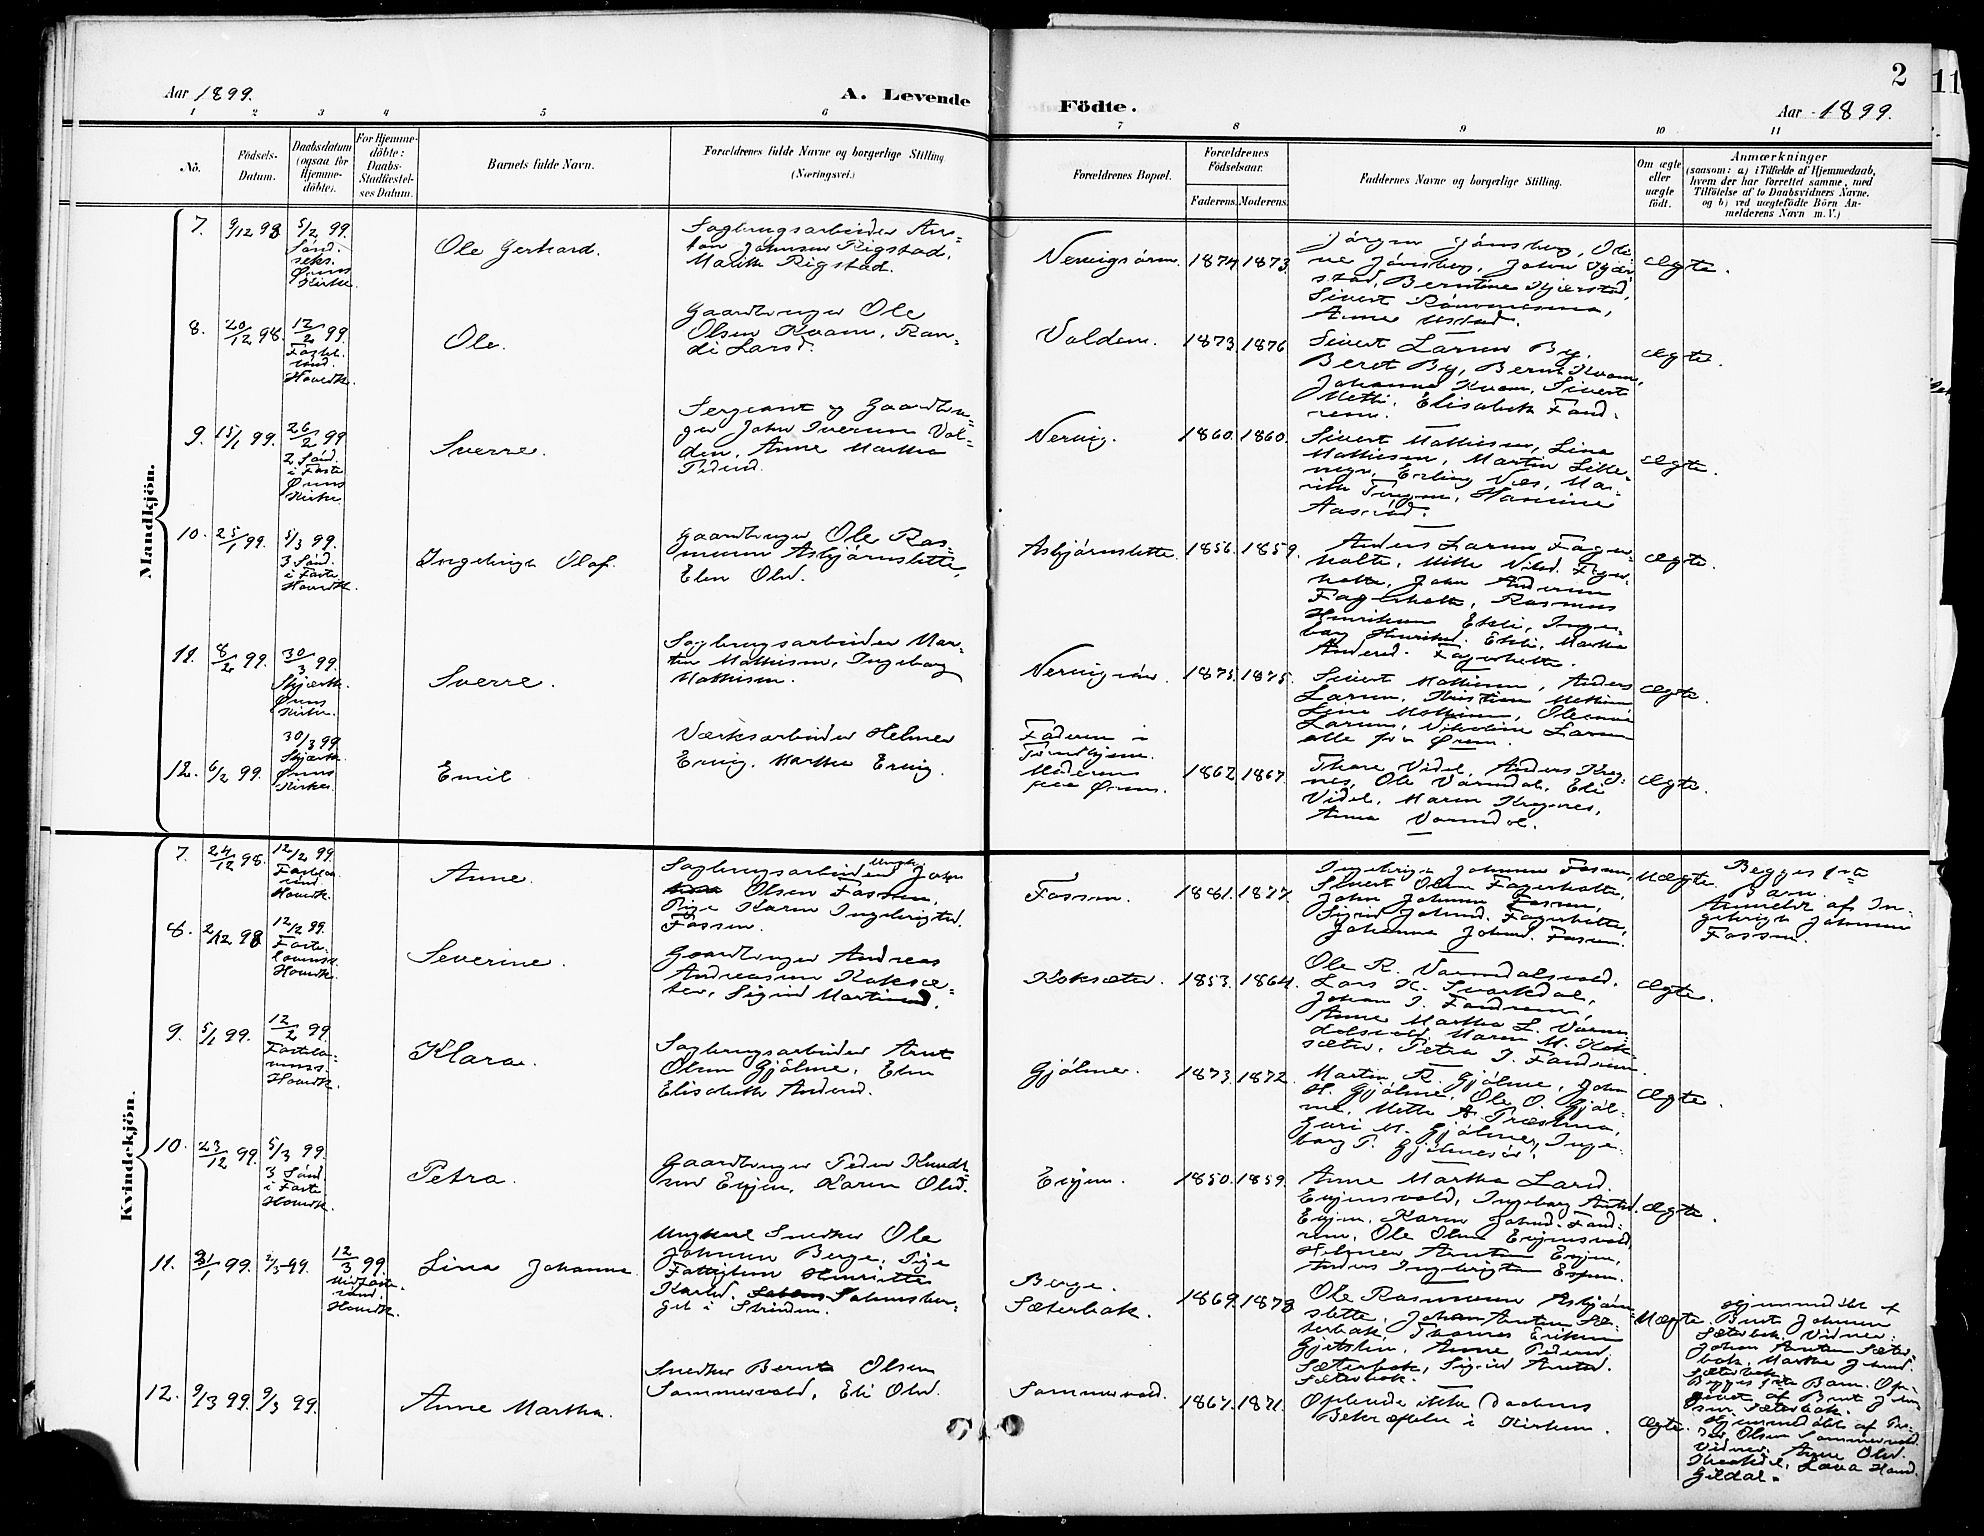 Aar 1899.
A. Levende Födte.
2
Aar 1899.
1 2 3 4 5 6 7 8 9 10 11
No.
Födsels-Datum.
Daabsdatum (ogsaa for Hjemme-döbte).
For Hjemme-döbte: Daabs-Stadfæstel-ses Datum.
Barnets fulde Navn.
Forældrenes fulde Navne og borgerlige Stilling (Næringsvei.)
Forældrenes Bopæl.
Forældrenes Födselsaar.
Faderens. Moderens.
Faddernes Navne og borgerlige Stilling.
Om ægte eller uægte födt.
Anmærkninger
(saasom: a) i Tilfælde af Hjemmedaab,
hvem der har forrettet samme, med
Tilföielse af to Daabsvidners Navne.
og b) ved uægtefödte Börn An-
melderens Navn m. V.)
Mandkjön.
7. 9/12 98
5/2 99.
Sönd.
seks.
Ørens
Kirke
Ole Gerhard.
Sagbrugsarbeider An-
ton Johnsen Rigstad,
Marith Rigstad.
1874 1873.
Ægte.
8. 20/12 98.
12/2 99
Hovedk.
Ole.
Gaardbruger Ole
Olsen Kvam, Ran-
di Larsd.
Valden.
1873 1876
Sivert Larsen By,
Beret By, Bernt Kvam,
Johanna Kvam, Sivert
Metli, Elisabeth Fand-
rem.
Ægte
9. 15/1 99.
26/2 99
2 Sönd.
i Faste
Ørens
Kirke
Sverre.
Sergeant og Gaardbru-
ger John Iversen Val-
den, Anne Martha
Pedersd.
Nervig.
1860. 1860.
Sivert Mathisen, Lina
Mathisen, Martin Lille-
Erling Næs, Ma-
Ægte.
10. 25/1 99.
5/3 99.
3 Sönd.
i Faste
Hovedk
Ingebrigt Olaf.
Gaardbruger Ole Ras-
mussen Asbjørnslette,
Elen Olsd.
Asbjørnslette.
1856. 1859.
Anders Larsen Fager-
holte, Mette Nilsd. Fager-
holte, John Andersen
Fagerholte, Rasmus
Henriksen Ekli, Inge-
borg Henriksd. Ekli, Martha
Andersd. Fagerholte.
Ægte.
11. 8/2 99.
30/3 99.
Skjærth.
Ørens
Kirke.
Sverre.
Sagbrugsarbeider Mar-
tin Mathisen, Ingeborg
Mathisen.
1873. 1875.
Sivert Mathisen, Anders
Larsen, Kristian Mathisen
Lina Mathisen,
Larsen, Nikoline Larsen
alle fra Øren.
Ægte.
12. 6/2 99.
30/3 99
Skjærth
Ørens
Kirke
Emil
Værksarbeider Helmer
Ervig, Martha Ervig.
Faderen i
Trondhjem.
Moderen
paa Øren.
1862. 1867.
Thore Videl, Anders Krog-
nes, Ole Varmdal, Eli
Videl, Maren Krognes,
Anna Varmdal.
Ægte.
Kvindekjön.
7. 24/12 98.
12/2 99.
Hovedk.
Anne.
Sagbrugsarbeider Ungk. John
Olsen Fossen,
Pige Karen Ingebrigtsd.
Fossen.
Fossen.
1881. 1877.
Ingebrigt Johnsen Fossen,
Sivert Olsen Fagerholte,
John Johnsen Fossen,
Sigrid Johnsd. Fagerholte,
Johanna Johnsd. Fossen.
Uægte.
Begges 1ste
Barn.
Anmeldt af In-
gebrigt Johnsen
Fossen.
8. 2/12 98
12/2 99.
Faste-
lavnss.
Hovedk.
Severine.
Gaardbruger Andreas
Andreassen Koksæ-
ter, Sigrid Martinsd.
Koksæter.
1853. 1864.
Ole R. Varmdalsvold,
Lars H. Svarkdal,
Johan J. Fandrem,
Anne Martha L. Varm-
dalsvold, Maren M. Kok-
sæter, Petra J. Fandrem.
Ægte.
9. 5/1 99.
12/2 99.
Fastela-
vnss.
Hovedk.
Klara.
Sagbrugsarbeider Arnt
Olsen Gjølme, Elen
Elisabeth Andersd.
Gjølme.
1873. 1872.
Martin R. Gjølme, John
H. Gjølme, Ole O. Gjøl-
me, Mette A.
Guri M. Gjølme, Inge-
borg P.
Ægte.
10. 23/12 99.
5/3 99.
3. Sönd.
i Faste
Hovedk.
Petra.
Gaardbruger Peder Knudt-
sen Evjen, Karen Olsd.
Evjen.
1850. 1859.
Anne Martha Larsd.
Evjensvold, Ingeborg Arntsd.
Evjen, Karen Johnsd. Fand-
rem, Ole Olsen Evjensvold,
Helmer Arntsen Evjen,
Anders Ingebrigtsen Espen.
Ægte.
11. 31/1 99. 2/3 99.
12/3 99.
Midfaste
sönd.
Hovedk.
Lina Johanna
Ungkarl Snedker Ole
Johnsen Berge, Pige
Fattiglem Henriette
Karlsd. Salomsber-
get i Strinden.
Berge
Sæterbak.
1869. 1878
Ole Rasmussen Asbjørn-
slette, Johan Arntsen Sæ-
terbak, Thomas Eriksen
Gjetslien, Anne Pedersd.
Sæterbak, Sigrid Arntsd.
Sæterbak.
Uægte.
Hjemmedöbt af
Bernt Johnsen
Sæterbak. Vidner:
Johan Arntsen Sæter-
bak, Martha Johnsd.
Sæterbak.
Begges 1ste Barn. Op-
givet af Bernt John-
sen Sæterbak.
12. 9/3 99. 9/3 99.
Anne Martha.
Snedker Bernt Olsen
Sommervold, Eli Olsd.
Sommervold.
1867. 1871.
Oplevede ikke Daabens
Bekræftelse i Kirken.
Ægte.
Hjemmedöbt af Pe-
der Olsen Sommervold.
Vidner: Anne Olsd.
Gildal.